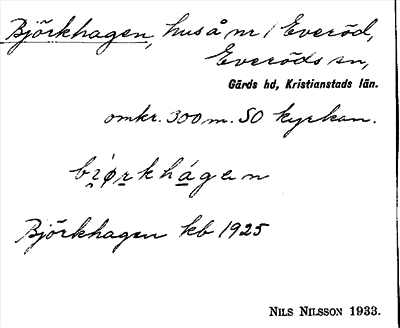 Björkhagen, hus å nr 1 Everöd,
Everöds sn,
Gärds hd, Kristianstads län.
omkr. 300 m. SO kyrkan.
bi̯ø̀r̠khág̠en
Björkhagen kb 1925
NILS NILSSON 1933.